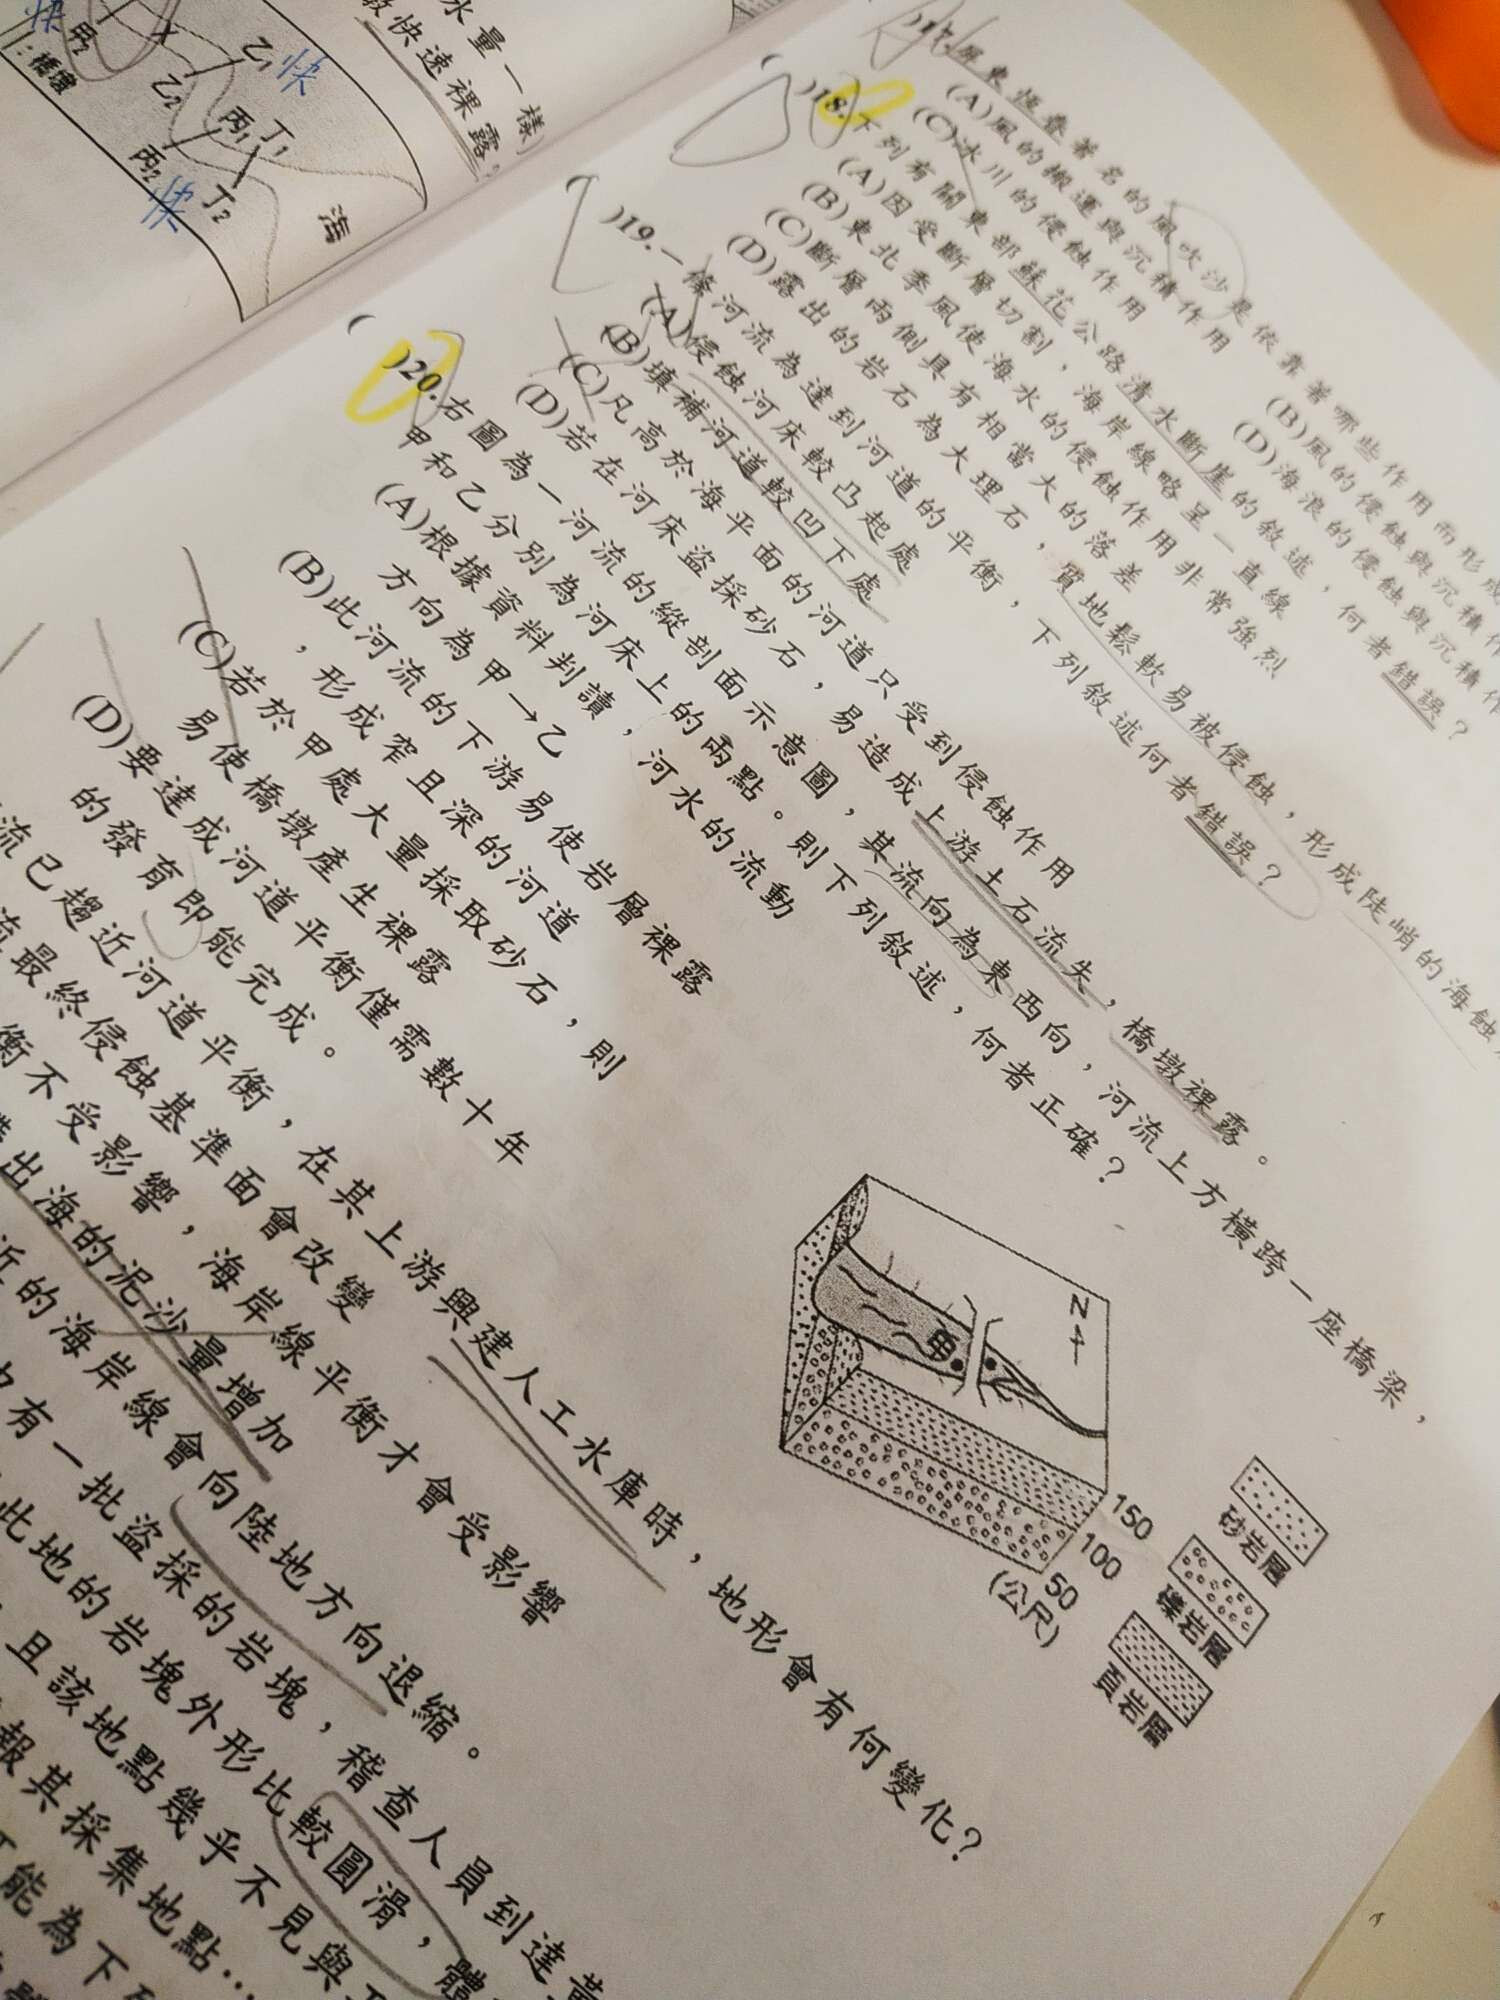 水量一樣)
致快速裸露?
快
甲2
X
乙1 快
乙2
丙1
丁1
丙2
丁2
快
海
:橋墩
屏東恆春著名的風吹沙是依靠著哪些作用而形成
(A)風的搬運與沉積作用
(B)風的侵蝕與沉積作
(C)冰川的侵蝕作用
(D)海浪的侵蝕與沉積作
( )18.下列有關東部蘇花公路清水斷崖的敘述,何者錯誤?
(A)因受斷層切割,海岸線略呈一直線
(B)東北季風使海水的侵蝕作用非常強烈
(C)斷層兩側具有相當大的落差
(D)露出的岩石為大理石,質地鬆軟易被侵蝕,形成陡峭的海蝕
( )19.一條河流為達到河道的平衡,下列敘述何者錯誤?
(A)侵蝕河床較凸起處
(B)填補河道較凹下處
(C)凡高於海平面的河道只受到侵蝕作用
(D)若在河床盜採砂石,易造成上游土石流失,橋墩裸露。
( )20.右圖為一河流的縱剖面示意圖,其流向為東西向,河流上方橫跨一座橋梁,
甲和乙分別為河床上的兩點。則下列敘述,何者正確?
(A)根據資料判讀,河水的流動
方向為甲→乙
(B)此河流的下游易使岩層裸露
,形成窄且深的河道
(C)若於甲處大量採取砂石,則
易使橋墩產生裸露
(D)要達成河道平衡僅需數十年
的發育即能完成。
N
甲
150
100
50
(公尺)
砂岩層
礫岩層
頁岩層
流已趨近河道平衡,在其上游興建人工水庫時,地形會有何變化?
流最終侵蝕基準面會改變
衡不受影響,海岸線平衡才會受影響
出海的泥沙量增加
近的海岸線會向陸地方向退縮。
有一批盜採的岩塊,稽查人員到達
此地的岩塊外形比較圓滑,體
且該地點幾乎不見與
報其採集地點…
能為下